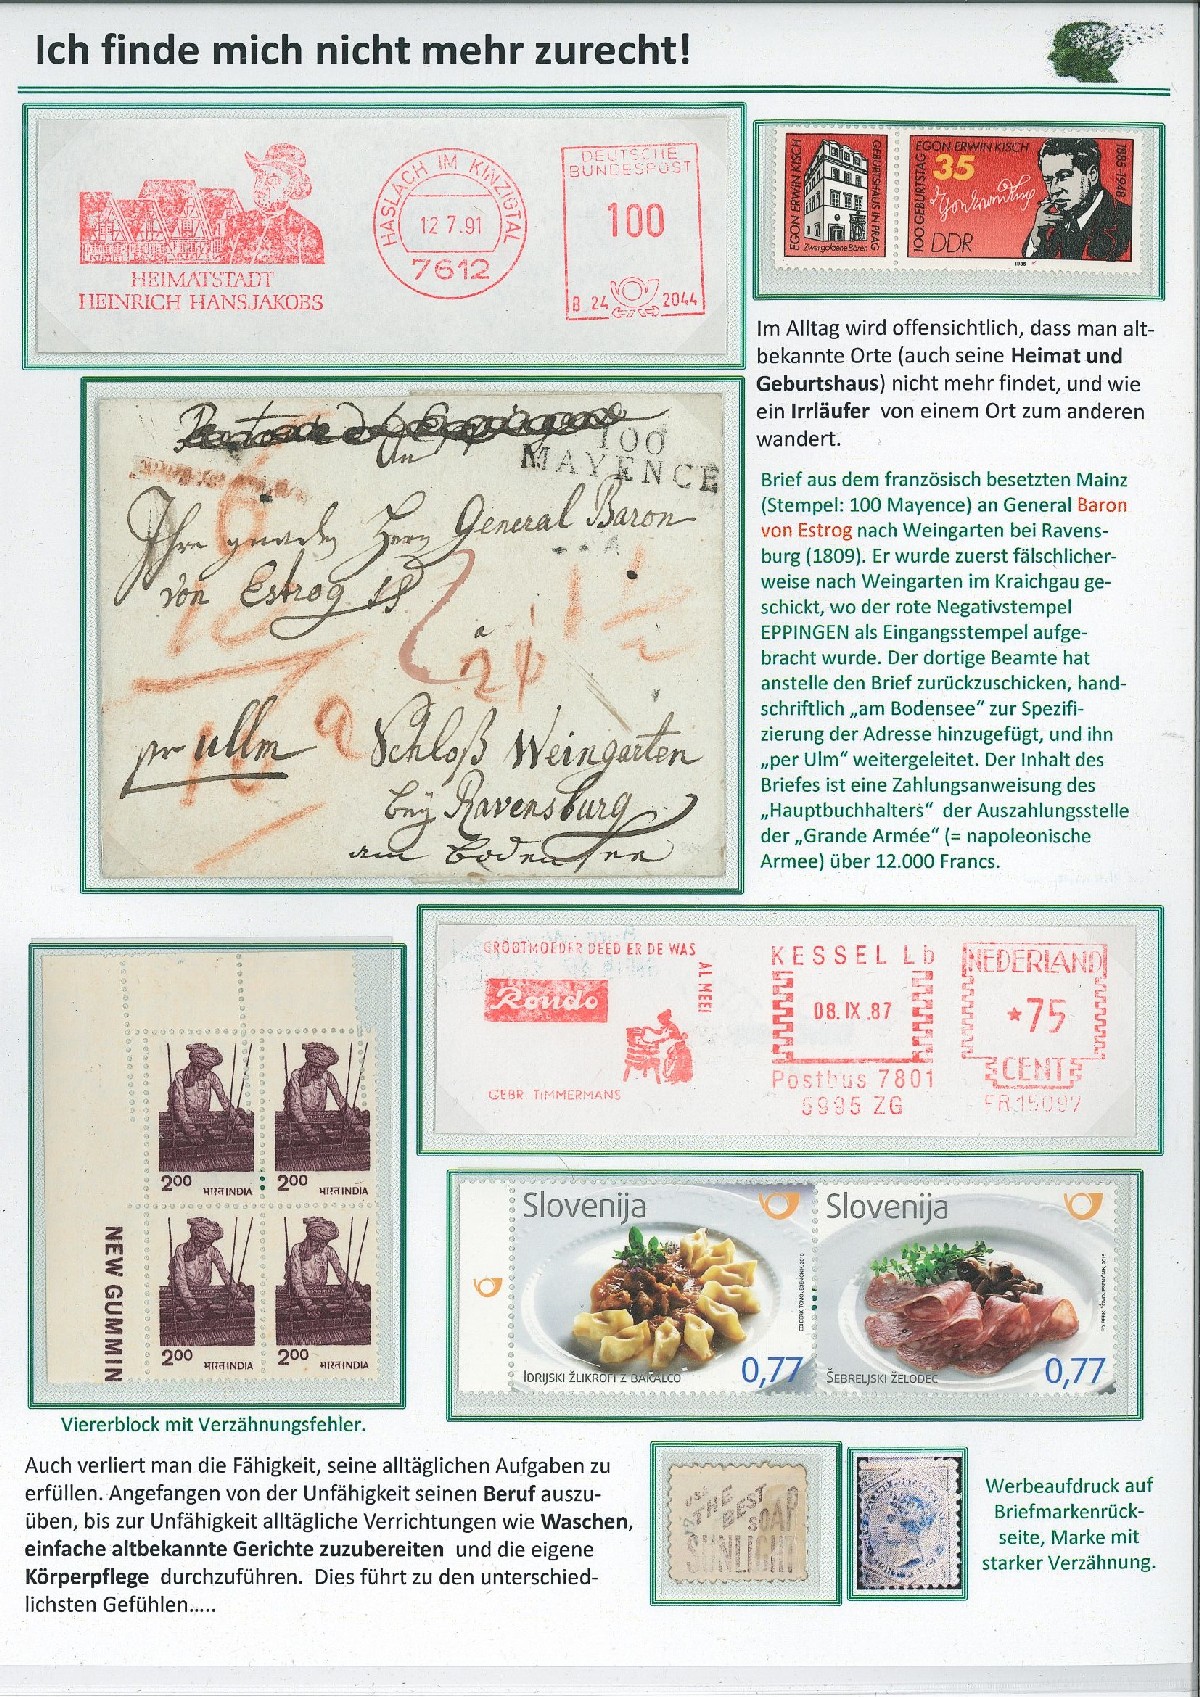 Ich finde mich nicht mehr zurecht!
HEIMATSTADT
HEINRICH HANSJAKOBS
HASLACH IM KINZIGTAL
12.7.91
7612
DEUTSCHE
BUNDESPOST
100
B 24 2044
EGON ERWIN KISCH
GEBURTSHAUS IN PRAG
Zwei goldene Bären
100. GEBURTSTAG
EGON ERWIN KISCH
1885-1948
35
DDR
Im Alltag wird offensichtlich, dass man alt-
bekannte Orte (auch seine Heimat und
Geburtshaus) nicht mehr findet, und wie
ein Irrläufer von einem Ort zum anderen
wandert.
100
MAYENCE
An
General Baron
von Estrog
pr Ullm
Schloß Weingarten
bey Ravensburg
am Bodensee
Brief aus dem französisch besetzten Mainz
(Stempel: 100 Mayence) an General Baron
von Estrog nach Weingarten bei Ravens-
burg (1809). Er wurde zuerst fälschlicher-
weise nach Weingarten im Kraichgau ge-
schickt, wo der rote Negativstempel
EPPINGEN als Eingangsstempel aufge-
bracht wurde. Der dortige Beamte hat
anstelle den Brief zurückzuschicken, hand-
schriftlich „am Bodensee“ zur Spezifi-
zierung der Adresse hinzugefügt, und ihn
„per Ulm“ weitergeleitet. Der Inhalt des
Briefes ist eine Zahlungsanweisung des
„Hauptbuchhalters“ der Auszahlungsstelle
der „Grande Armée“ (= napoleonische
Armee) über 12.000 Francs.
GROOTMOEDER DEED ER DE WAS
AL MEE!
Rondo
GEBR TIMMERMANS
KESSEL Lb
08.IX.87
Postbus 7801
5995 ZG
NEDERLAND
*75
CENT
2.00 भारत INDIA
2.00 भारत INDIA
2.00 भारत INDIA
2.00 भारत INDIA
NEW GUMMIN
Viererblock mit Verzähnungsfehler.
Slovenija
IDRIJSKI ŽLIKROFI Z BAKALCO
0,77
Slovenija
ŠEBRELJSKI ŽELODEC
0,77
Auch verliert man die Fähigkeit, seine alltäglichen Aufgaben zu
erfüllen. Angefangen von der Unfähigkeit seinen Beruf auszu-
üben, bis zur Unfähigkeit alltägliche Verrichtungen wie Waschen,
einfache altbekannte Gerichte zuzubereiten und die eigene
Körperpflege durchzuführen. Dies führt zu den unterschied-
lichsten Gefühlen.....
THE
BEST
SOAP
SUNLIGHT
Werbeaufdruck auf
Briefmarkenrück-
seite, Marke mit
starker Verzähnung.